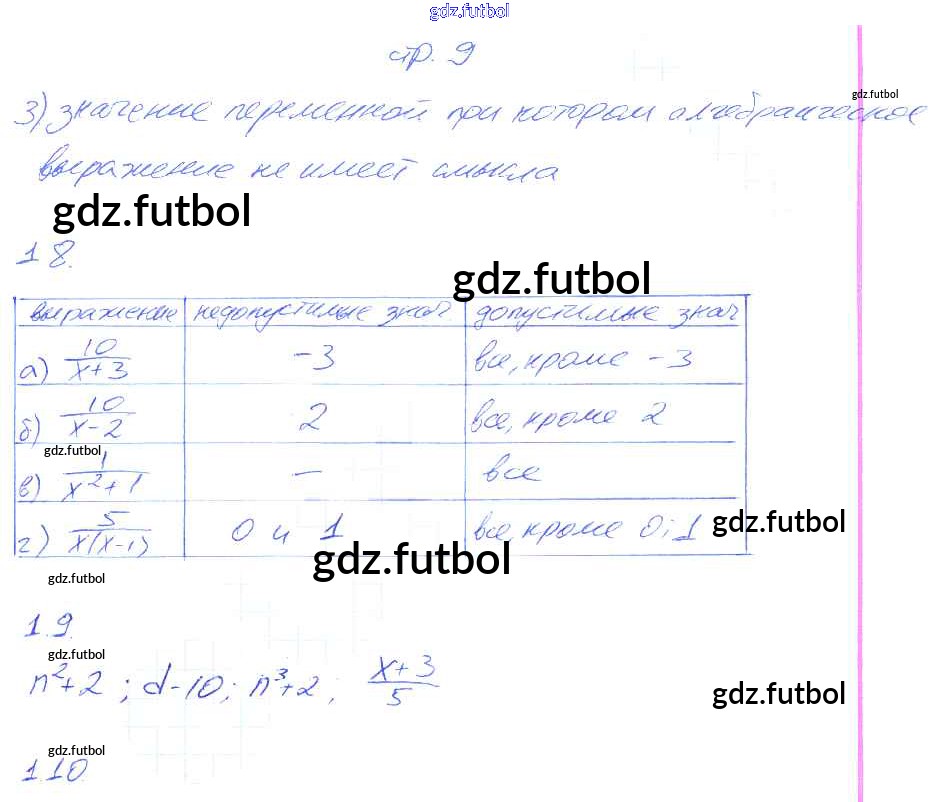 gdz.futbol
стр. 9
gdz.futbol
3) значение переменной при котором алгебраическое
выражение не имеет смысла
gdz.futbol
1 8.
gdz.futbol
выражение недопустимые знач. допустимые знач
а) 10/x+3 -3 все, кроме -3
б) 10/x-2 2 все, кроме 2
gdz.futbol
в) 1/x²+1 — все
г) 5/x(x-1) 0 и 1 все, кроме 0; 1
gdz.futbol
gdz.futbol
gdz.futbol
1.9.
gdz.futbol
n²+2 ; d-10; n³+2; x+3/5
gdz.futbol
gdz.futbol
1.10